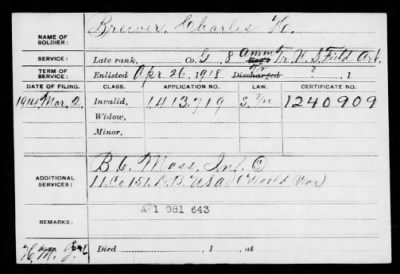 NAME OF SOLDIER: Brewer, Charles H.
SERVICE: Late rank, Co. G, 8 Amm. Tr. U. S. Field Art.
TERM OF SERVICE: Enlisted Apr. 26, 1918 Discharged ?, 1
DATE OF FILING. CLASS. APPLICATION NO. CERTIFICATE NO.
Mar. 2, Invalid, 1413,719 1240909
Widow,
Minor,
ADDITIONAL SERVICES: B 6. Mass. Inf.
11. Co 151. D. B. USA (World War)
REMARKS: 1 081 643
Died , 1 , at